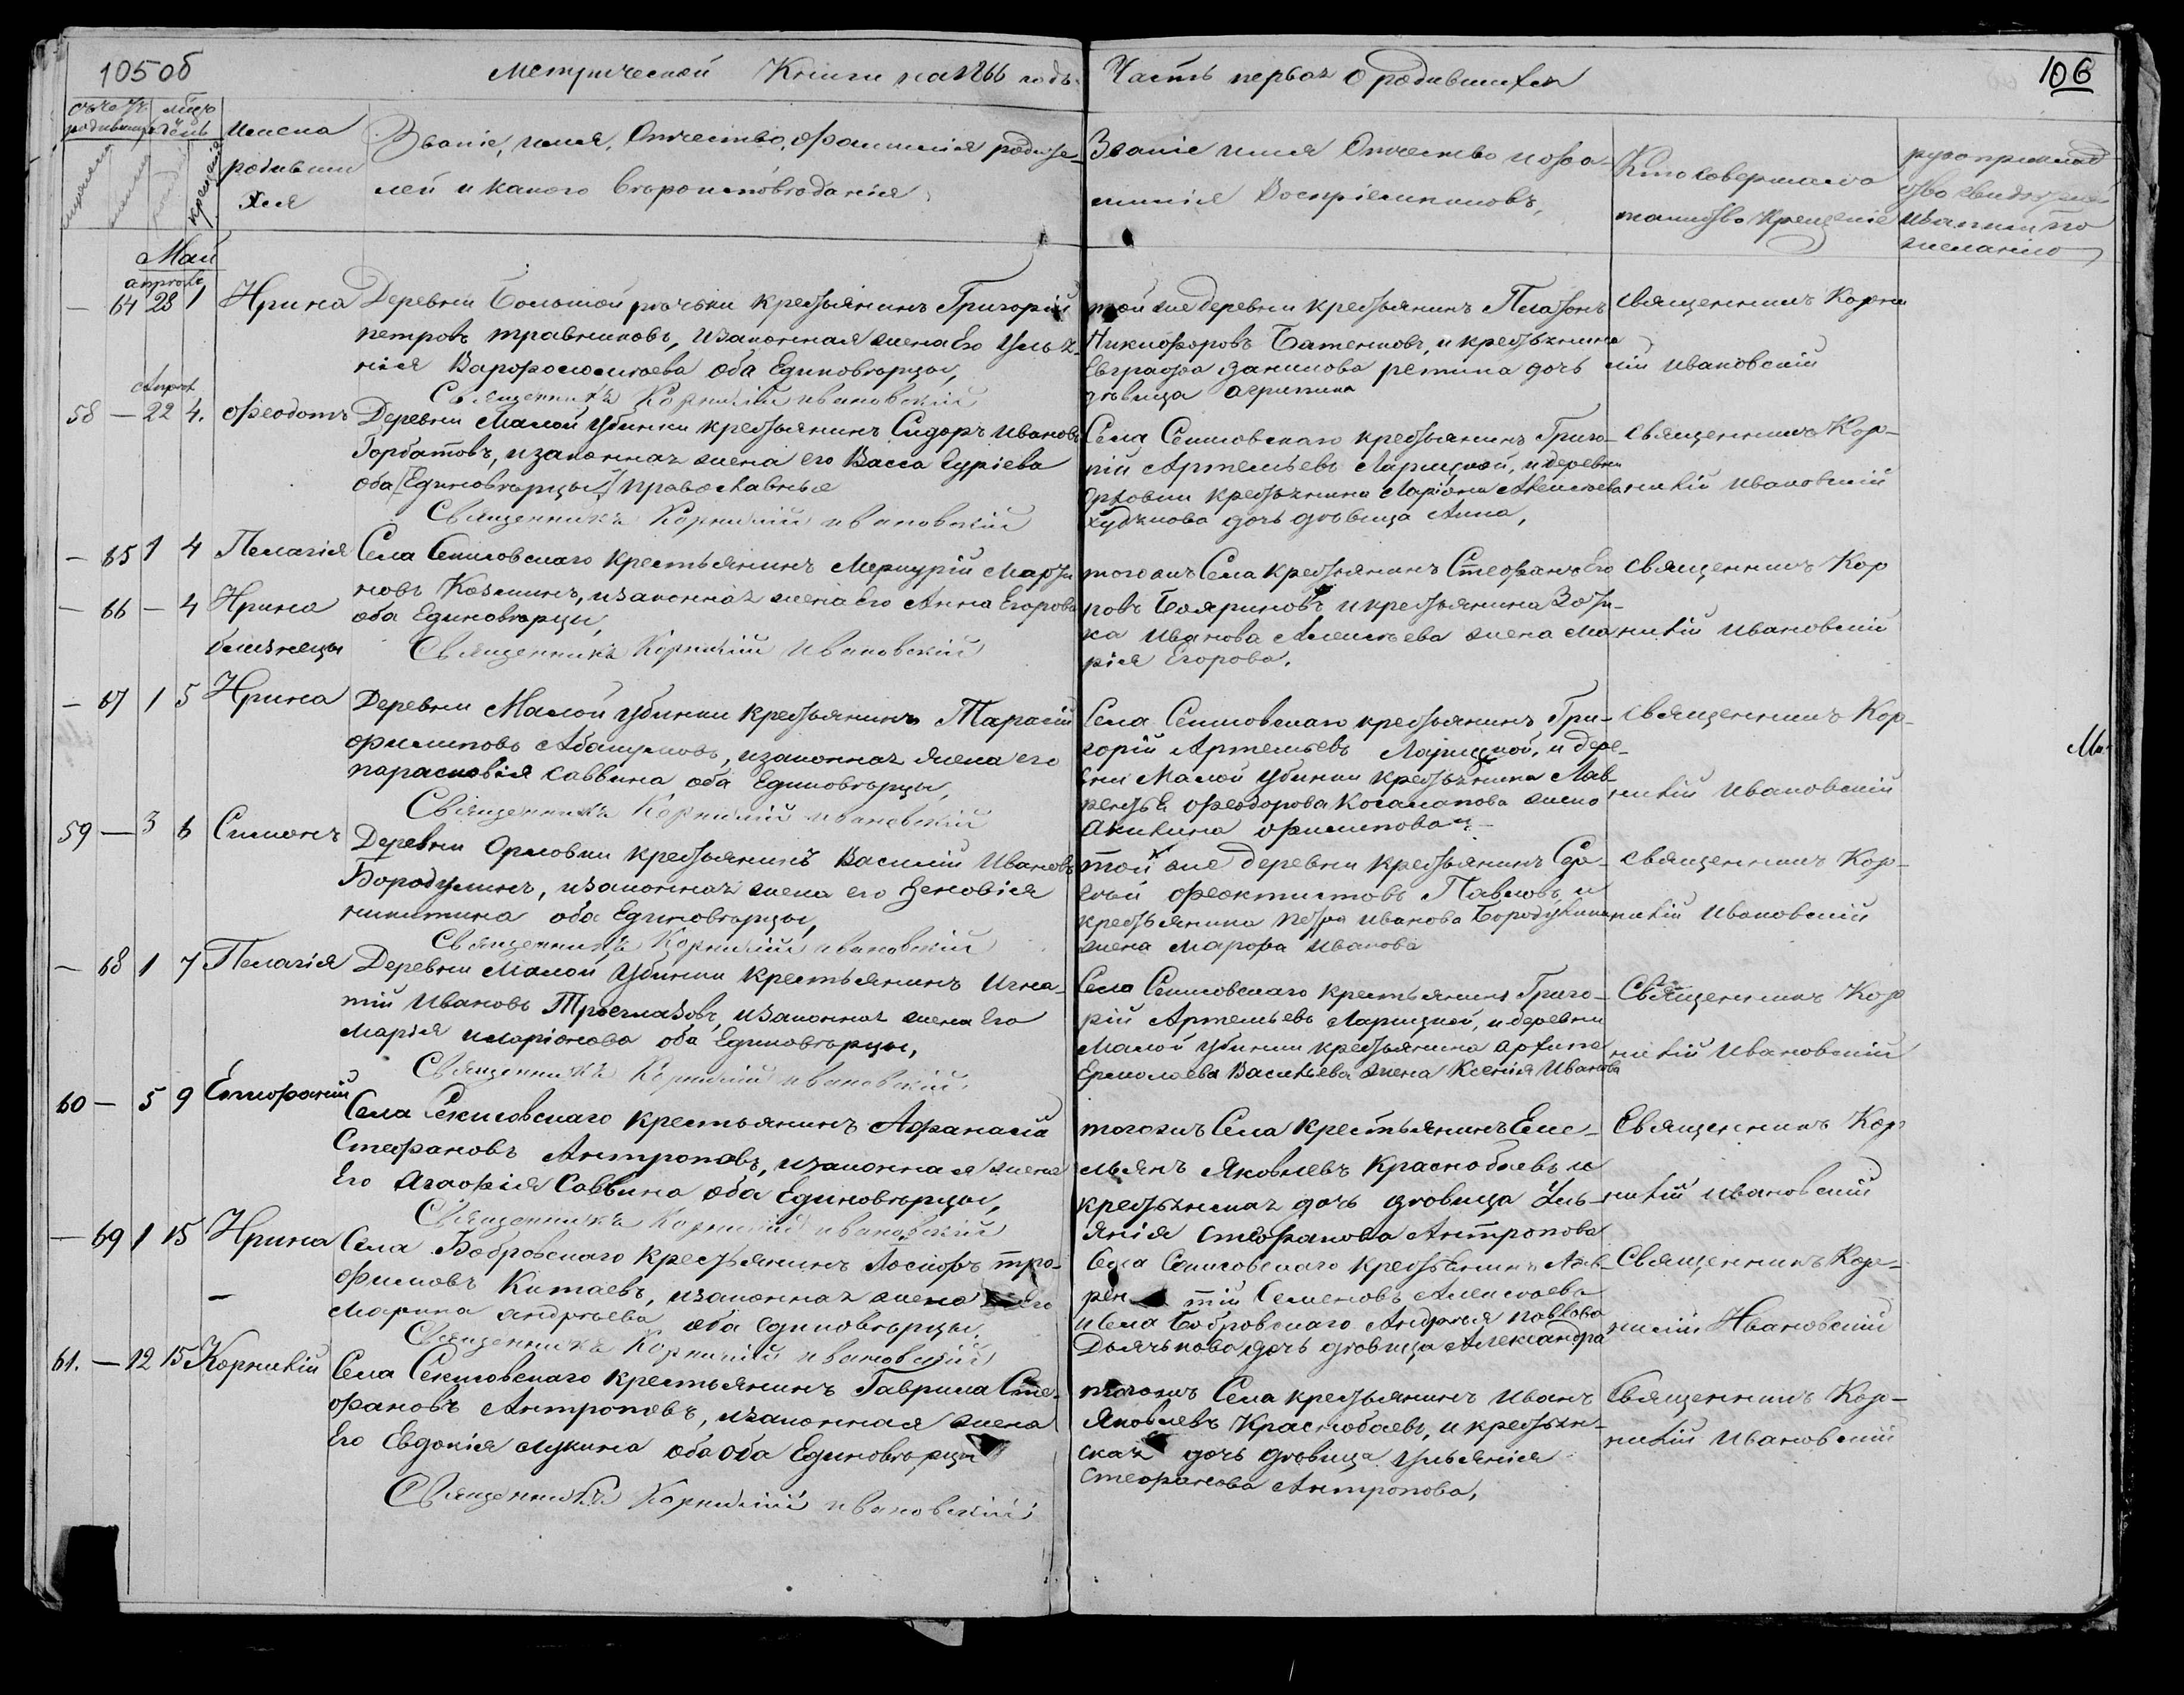 105 об
Метрической Книги на 1866 годъ
Часть первая о родившихся
106
счетъ родившихся
мѣсяцъ день
мужеска
женска
рожденія
крещенія
Имена
родивши
хся
Званіе, имя, Отчество, фамилія родите-
лей и какого вѣроисповѣданія
Званіе имя Отчество и фа-
милія Воспріемниковъ,
Кто совершалъ
таинство Крещеніе
рукоприклад
ство свидетелей
Записи по
желанію
Май
апрель
— 64 28 1 Ирина
Деревни Большой речьки крестьянинъ Григорій
петровъ травниковъ, изаконная жена Его Улья-
нія Варфоломѣева оба Единовѣрцы,
Священникъ Корнилій ивановскій
той же деревни крестьянинъ Платонъ
Никифоровъ Батенковъ, и крестьянина
Евграфа данилова ретина дочь
дѣвица агрипина
священникъ Корни
лій ивановскій
Апрел
58 — 22 4. Феодотъ
Деревни Малой убинки крестьянинъ Сидоръ Ивановъ
Горбатовъ, изаконная жена его Васса Гуріева
оба [Единовѣрцы] православные
Священникъ Корнилій ивановскій
Села Секисовскаго крестьянинъ Григо-
рій Артемьевъ Ларицкой, и деревни
Орловки крестьянина Ларіона Алексѣева
худякова дочь дѣвица Анна,
священникъ Кор-
нилій ивановскій
— 65 1 4 Пелагія
— 66 — 4 Ирина
близнецы
Села Секисовскаго крестьянинъ Меркурій Марти
новъ Козминъ, изаконная жена Его Анна Егорова
оба Единовѣрцы,
Священникъ Корнилій Ивановскій
того жъ Села крестьянинъ Стефанъ Его
ровъ Бояриновъ и крестьянина Зоти-
ка Иванова Алексѣева жена Ма
рія Егорова.
священникъ Кор
нилій Ивановскій
— 67 1 5 Ирина
Деревни Малой убинки крестьянинъ Тарасій
филиповъ Абакумовъ, изаконная жена его
парасковія саввина оба Единовѣрцы,
Священникъ Корнилій ивановскій
Села Секисовскаго крестьянинъ Гри-
горій Артемьевъ Ларицкой, и дере-
вни Малой убинки крестьянина Лав-
рентья феодорова Косаланова жена
Акилина филипова
священникъ Кор-
нилій Ивановскій
59 — 3 6 Симонъ
Деревни Орловки крестьянинъ Василій Ивановъ
Бородулинъ, изаконная жена его Зеновія
никитина оба Единовѣрцы,
Священникъ Корнилій ивановскій
той же деревни крестьянинъ Са-
велій феоктистовъ Павловъ, и
крестьянина петра иванова Бородулина
жена Марфа Иванова
священникъ Кор-
нилій Ивановскій
— 68 1 7 Пелагія
Деревни Малой убинки крестьянинъ Игна-
тій Ивановъ Троеглазовъ, изаконная жена Его
Марія иларіонова оба Единовѣрцы,
Священникъ Корнилій ивановскій
Села Секисовскаго крестьянинъ Григо-
рій Артемьевъ Ларицкой, и деревни
Малой убинки крестьянина архипа
Ермолаева Васильева жена Ксенія Иванова
Священникъ Кор
нилій Ивановскій
60 — 5 9 Епифаній
Села Секисовскаго крестьянинъ Афанасій
Стефановъ Антроповъ, изаконная жена
Его Агафія Саввина оба Единовѣрцы,
Священникъ Корнилій ивановскій
того жъ Села крестьянинъ Еме-
льянъ Яковлевъ Краснобаевъ и
крестьянская дочь дѣвица Уль-
янія стефанова Антропова
Священникъ Кор
нилій ивановскій
— 69 1 15 Ирина
Села Бобровскаго крестьянинъ Іосифъ тро-
фимовъ Китаевъ, изаконная жена Его
Марина андреева оба единовѣрцы.
Священникъ Корнилій ивановскій
Села Секисовскаго крестьянинъ Лав-
рен тій Семеновъ Алексѣева
и Села Бобровскаго Андрея павлова
Дьячькова дочь дѣвица Александра
Священникъ Кор-
нилій Ивановскій
61. — 12 15 Корнилій
Села Секисовскаго крестьянинъ Гаврила Сте-
фановъ Антроповъ, изаконная жена
Его Евдокія лукина оба оба Единовѣрцы
Священникъ Корнилій ивановскій
того жъ Села крестьянинъ Иванъ
Яковлевъ Краснобаевъ, и крестьян-
ская дочь дѣвица ульянія
стефанова Антропова,
Священникъ Кор-
нилій Ивановскій